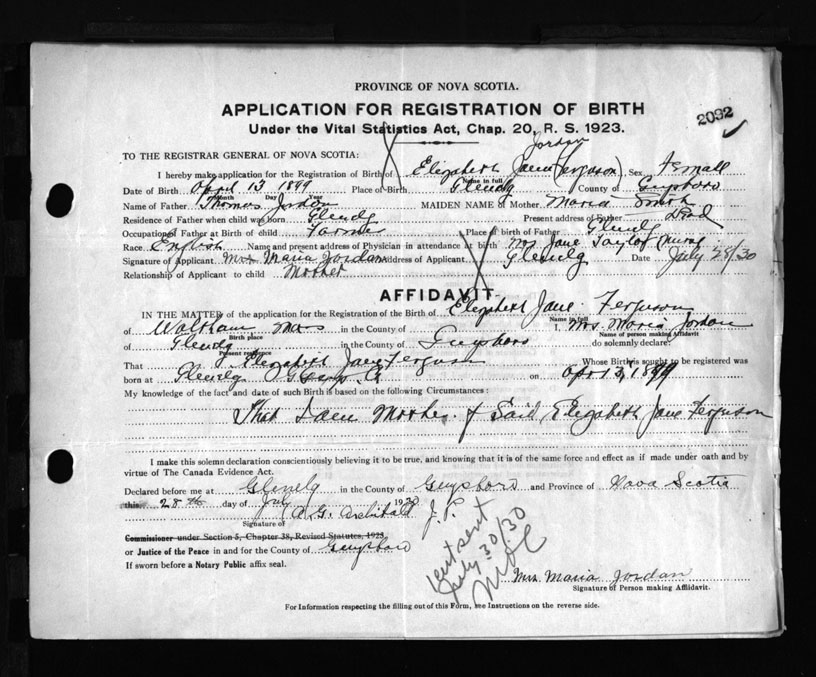 PROVINCE OF NOVA SCOTIA.
APPLICATION FOR REGISTRATION OF BIRTH
2092
Under the Vital Statistics Act, Chap. 20, R. S. 1923.
Jordan
TO THE REGISTRAR GENERAL OF NOVA SCOTIA:
I hereby make application for the Registration of Birth of Elizabeth Jane (Ferguson) Sex Female
Month Day Year Name in full
Date of Birth April 13 1899 Place of Birth Glenelg County of Guysboro
Name of Father Thomas Jordan MAIDEN NAME of Mother Maria Smith
Residence of Father when child was born Glenelg Present address of Father Dead
Occupation of Father at Birth of child Farmer Place of birth of Father Glenelg
Race English Name and present address of Physician in attendance at birth Mrs Jane Taylor (Nurse)
Signature of Applicant Mrs Maria Jordan Address of Applicant Glenelg Date July 28/30
Relationship of Applicant to child Mother
AFFIDAVIT
IN THE MATTER of the application for the Registration of Birth of Elizabeth Jane Ferguson
Name in full
of Waltham Mass in the County of I, Mrs. Maria Jordan
Birth place Name of person making Affidavit
of Glenelg in the County of Guysboro do solemnly declare:
Present residence
That Elizabeth Jane Ferguson Whose Birth is sought to be registered was
born at Glenelg Guys. Co on Apr 13, 1899
My knowledge of the fact and date of such Birth is based on the following Circumstances:
That I am Mother of Said Elizabeth Jane Ferguson
I make this solemn declaration conscientiously believing it to be true, and knowing that it is of the same force and effect as if made under oath and by
virtue of The Canada Evidence Act.
Declared before me at Glenelg in the County of Guysboro and Province of Nova Scotia
this 28th day of July 1930
A. G. Archibald J. P.
Signature of
Commissioner under Section 5, Chapter 38, Revised Statutes, 1923
or Justice of the Peace in and for the County of Guysboro
If sworn before a Notary Public affix seal.
cert sent
July 30/30
Mrs. Maria Jordan
Signature of Person making Affidavit.
For Information respecting the filling out of this Form, see Instructions on the reverse side.